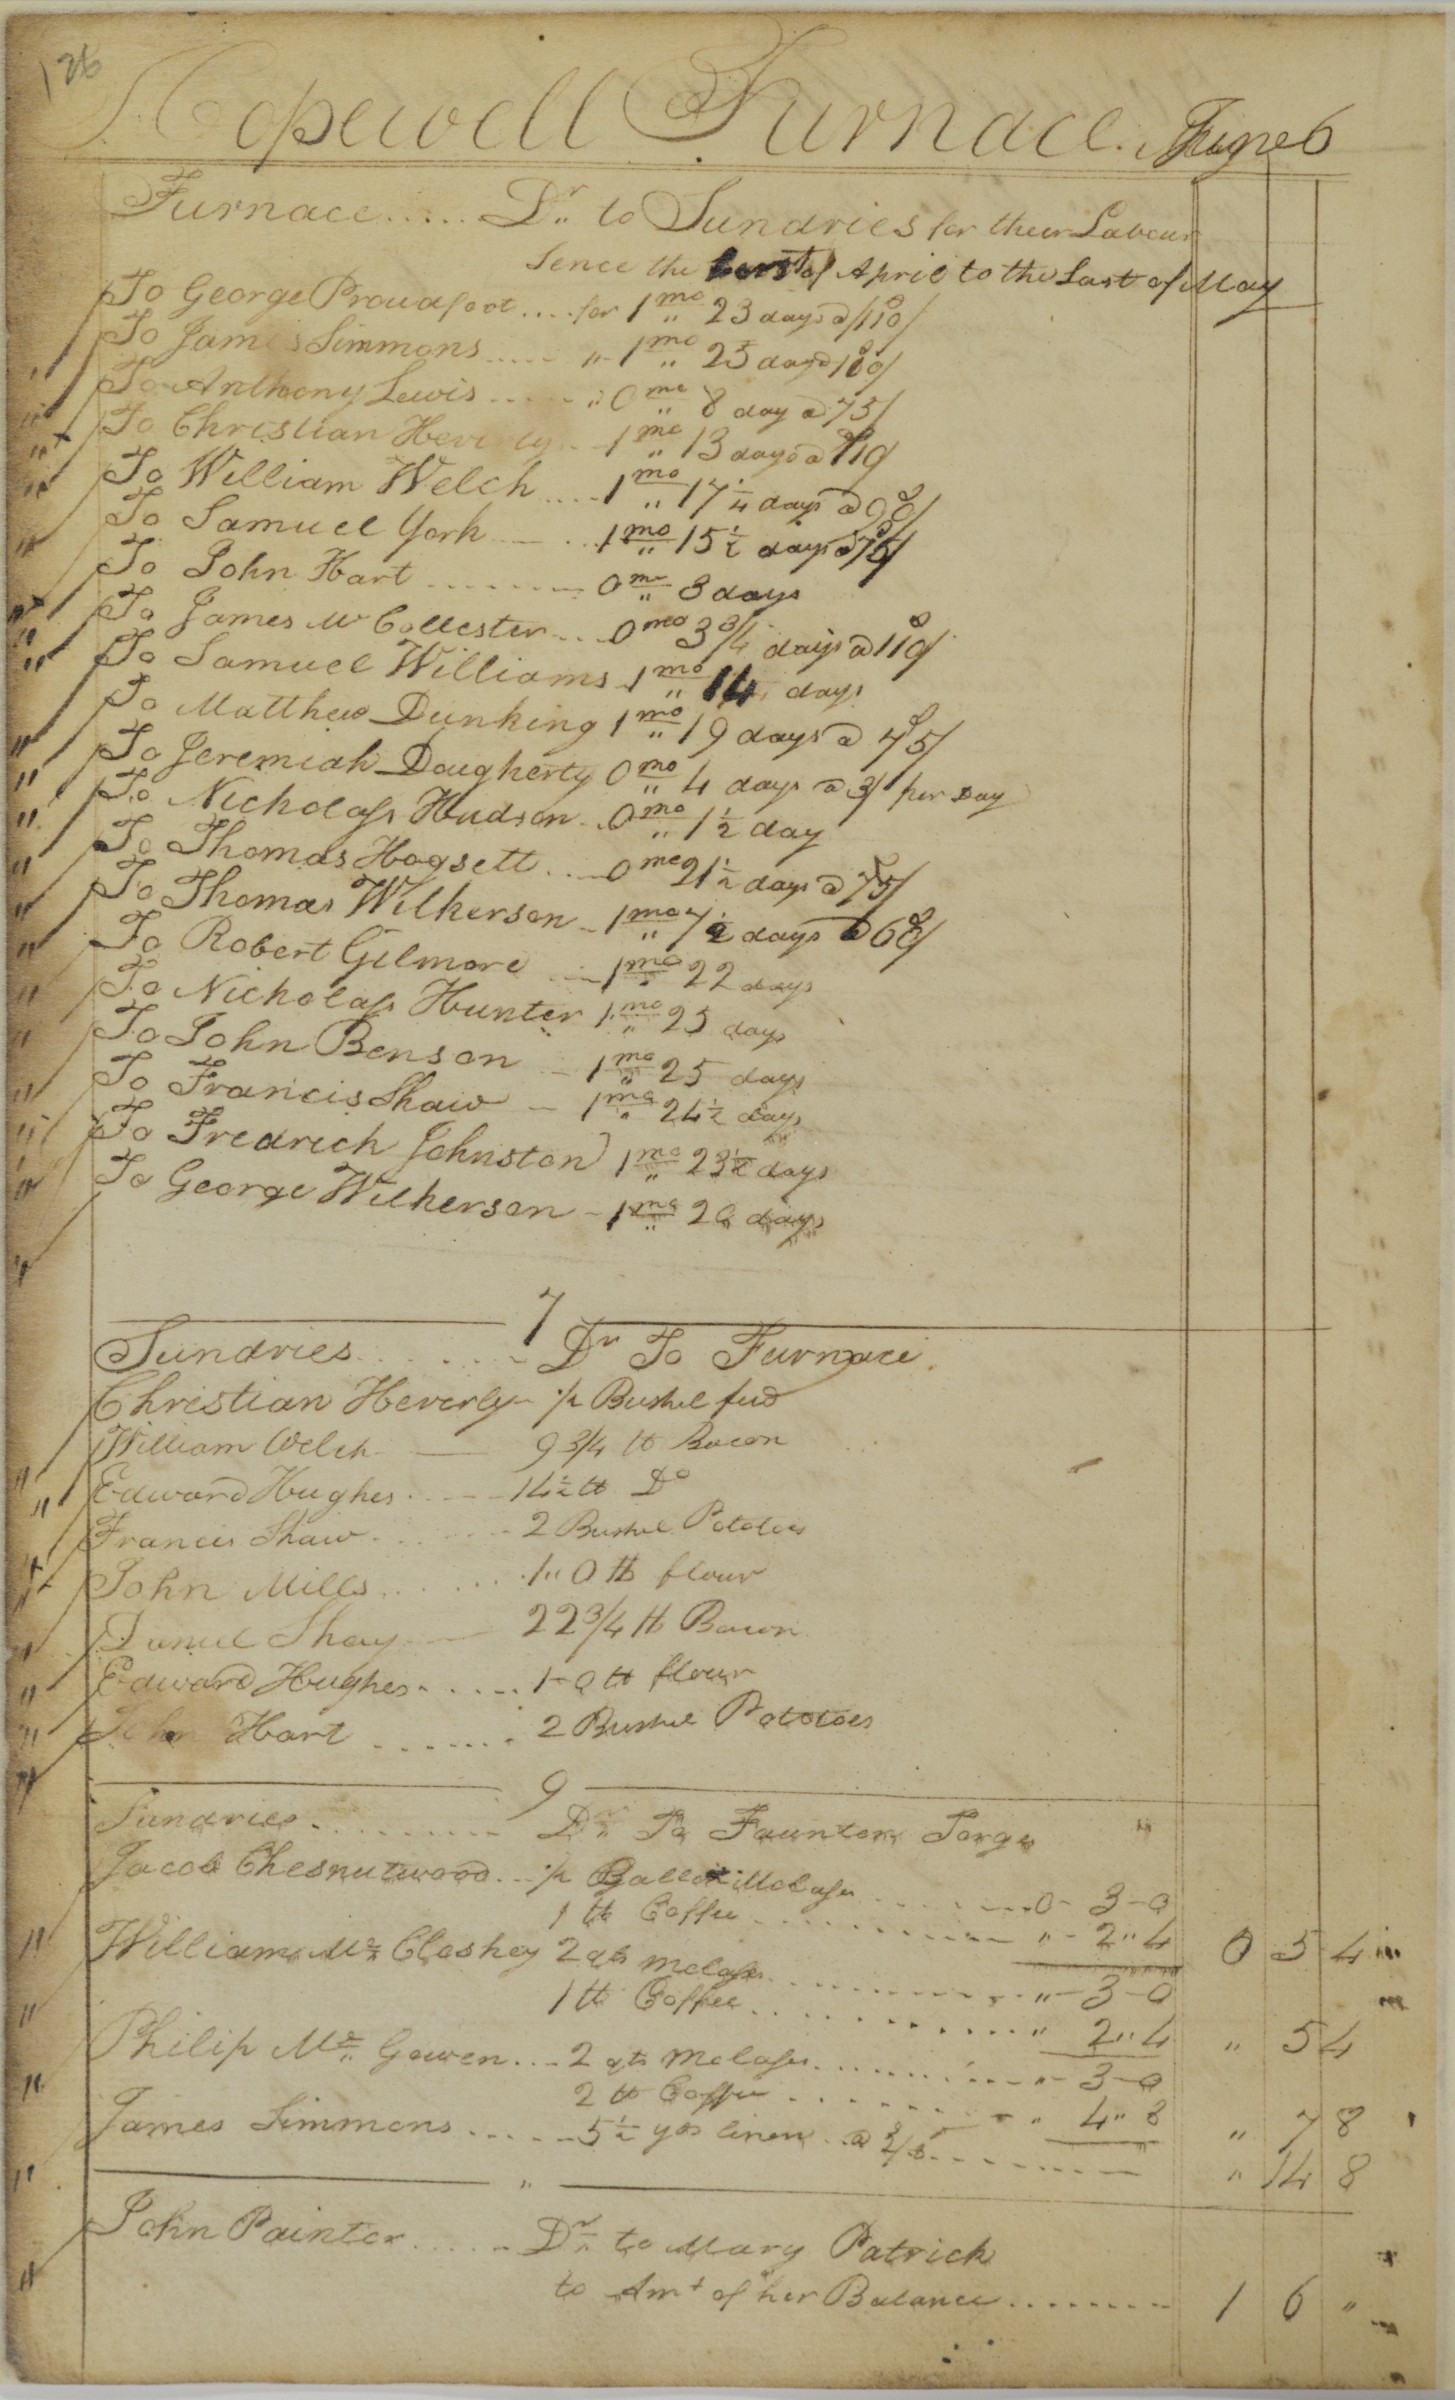 126
Hopewell Furnace. June 6
Furnace..... Dr. to Sundries for their Labour
Sence the first of April to the Last of May
To George Proudfoot .... for 1 mo 23 days @ 110/
To James Simmons ..... " 1 mo 25 days @
To Anthony Lewis ..... " 0 mo 8 day @ 75/
To Christian Heverly .. 1 mo 13 days @ 110/
To William Welch .... 1 mo 17 1/4 days @ 90/
To Samuel York .. 1 mo 15 1/2 days @ 75/
To John Hart ....... 0 mo 3 days
To James Mc Collester ... 0 mo 3 3/4 days @ 110/
To Samuel Williams 1 mo 14 days
To Matthew Dunking 1 mo 19 days @ 75/
To Jeremiah Daugherty 0 mo 4 days @ 3/ per Day
To Nicholass Hudson .. 0 mo 1 1/2 day
To Thomas Hogsett .... 0 mo 21 1/2 days @ 75/
To Thomas Wilkerson - 1 mo 7 1/2 days @ 60/
To Robert Gilmore ... 1 mo 22 days
To Nicholass Hunter 1 mo 25 days
To John Benson .. 1 mo 25 days
To Francis Shaw - 1 mo 24 1/2 days
To Fredrich Johnston 1 mo 23 1/2 days
To George Wilkerson - 1 mo 20 days
7
Sundries ...... Dr To Furnace
Christian Heverly - 1/2 Bushel
William Welch — 9 3/4 lb Bacon
Edward Hughes .. — 14 1/2 lb Do
Francis Shaw ...... 2 Bushel Potatoes
John Mills ...... 1 " 0 lb flour
Daniel Shay — 22 3/4 lb Bacon
Edward Hughes ..... 1 - 0 lb flour
John Hart ....... 2 Bushel Potatoes
9
Sundries .......... Dr. To Forge "
Jacob Chesnutwood ... 1/2 Gallon Molasses ........ 0 - 3 - 0
1 lb Coffee .......... " - 2 " 4 0 5 4
William Mc Closkey 2 qts Molasses .......... " - 3 - 0
1 lb Coffee ............ " 2 " 4 " 5 4
Philip Mc Gowen ... 2 qts Molasses .......... " - 3 - 0
2 lb Coffee ......... " 4 " 8 " 7 8
James Simmons ..... 5 1/2 yds linen .. @ 2/8 ........ " 14 8
"
John Painter ...... Dr. to Mary Patrick
to Amt of her Balance ........ 1 6 "